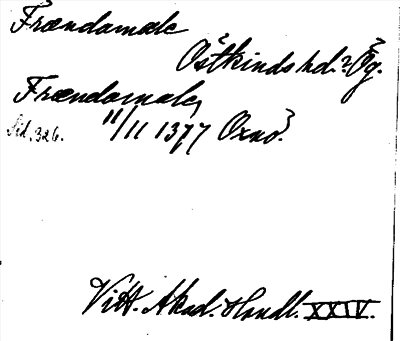 Frændamale
Östkinds hd.? Ög.
Frændamale,
Sid. 326. 11/11 1377 Oxnö.
Vitt. Akad. Handl. XXIV.